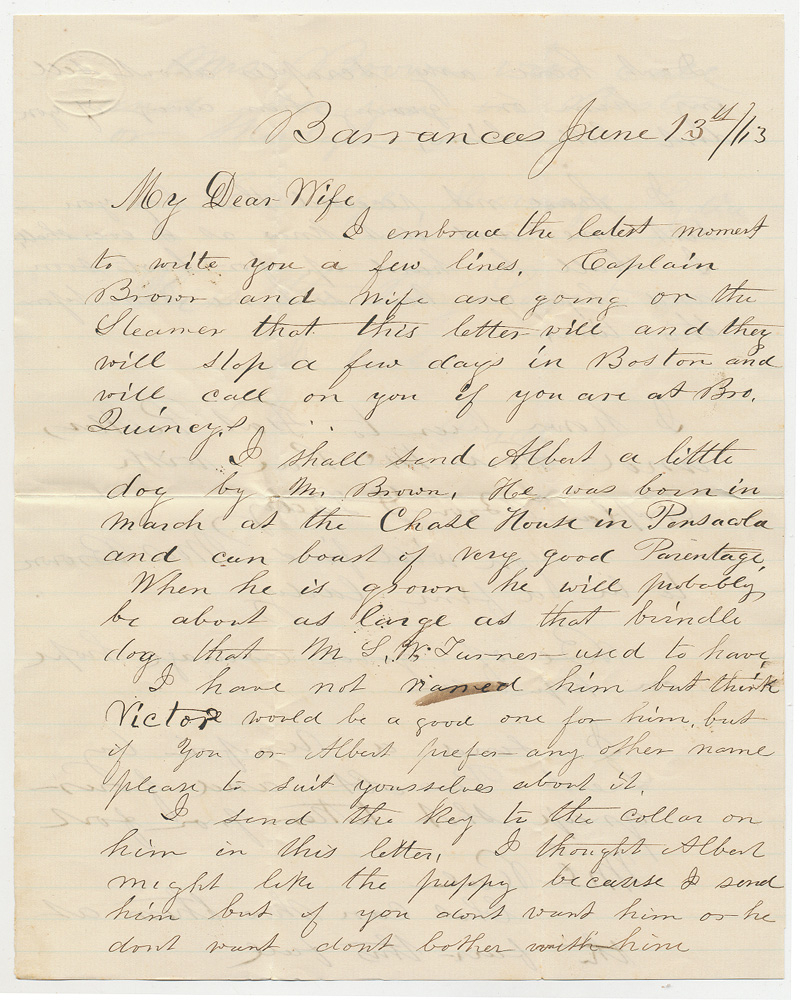 Barrancas June 13th/63
My Dear Wife
I embrace the latest moment
to write you a few lines. Captain
Brown and Wife are going on the
Steamer that this letter will and they
will stop a few days in Boston and
will call on you if you are at Bro.
Quincy's
I shall send Albert a little
dog by Mr. Brown. He was born in
march at the Chase House in Pensacola
and can boast of very good Parentage.
When he is grown he will probably
be about as large as that brindle
dog that Mr S. W. Turner used to have
I have not named him but think
Victor would be a good one for him, but
if You or Albert prefer any other name
please to suit yoursselves about it.
I send the Key to the collar on
him in this letter. I thought Albert
might like the puppy because I send
him but if you dont want him or he
dont want dont bother with him